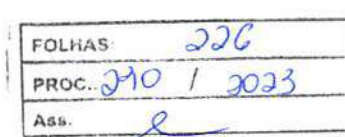 FOLHAS 226
PROC.. 290 / 2023
Ass.